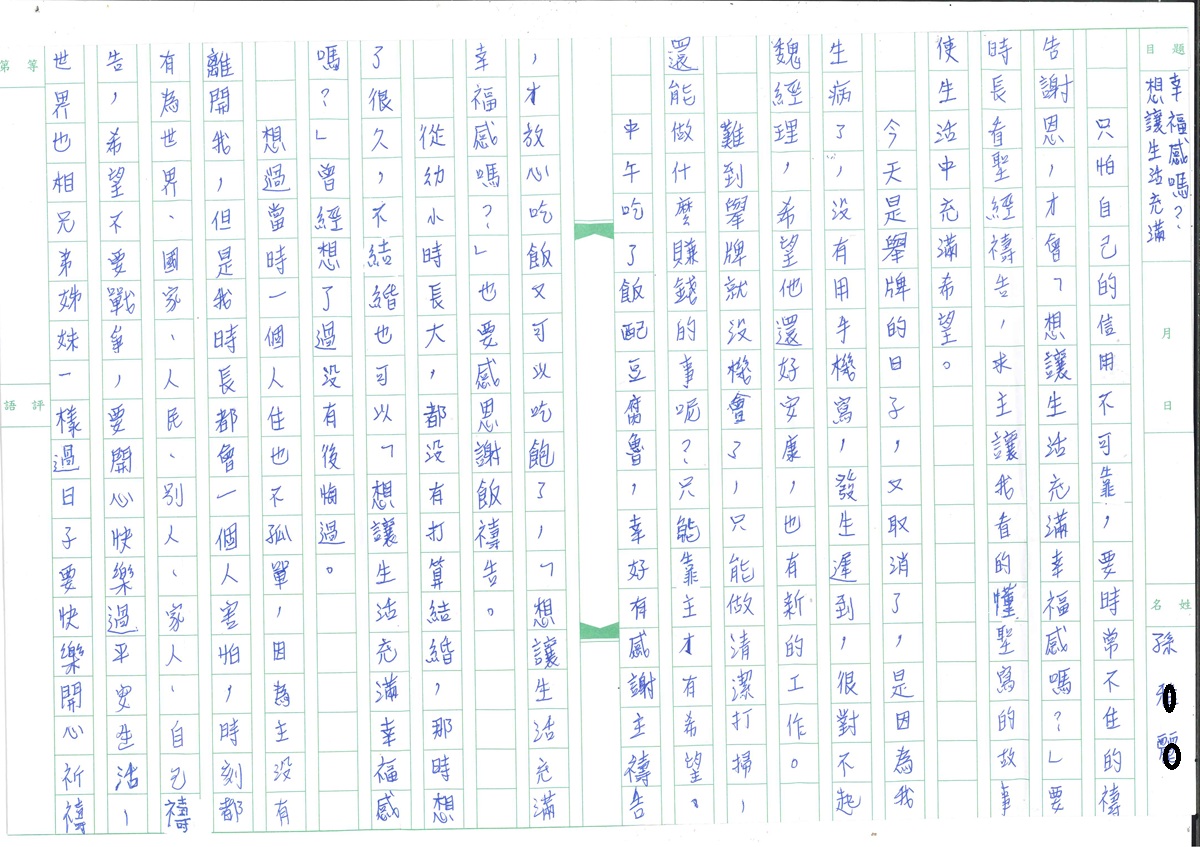 題目
想讓生活充滿
幸福感嗎?
月 日
姓名
孫
只怕自己的信用不可靠,要時常不住的禱
告謝恩,才會「想讓生活充滿幸福感嗎?」要
時長看聖經禱告,求主讓我看的懂聖寫的故事
使生活中充滿希望。
今天是舉牌的日子,又取消了,是因為我
生病了,沒有用手機寫,發生遲到,很對不起
魏經理,希望他還好安康,也有新的工作。
難到舉牌就沒機會了,只能做清潔打掃,
還能做什麼賺錢的事呢?只能靠主才有希望。
中午吃了飯配豆腐魯,幸好有感謝主禱告
,才放心吃飯又可以吃飽了,「想讓生活充滿
幸福感嗎?」也要感恩謝飯禱告。
從幼小時長大,都沒有打算結婚,那時想
了很久,不結婚也可以「想讓生活充滿幸福感
嗎?」曾經想了過沒有後悔過。
想過當時一個人住也不孤單,因為主沒有
離開我,但是我時長都會一個人害怕,時刻都
有為世界、國家、人民、別人、家人、自己禱
告,希望不要戰爭,要開心快樂過平安生活,
世界也相兄弟姊妹一樣過日子要快樂開心祈禱
等第
評語